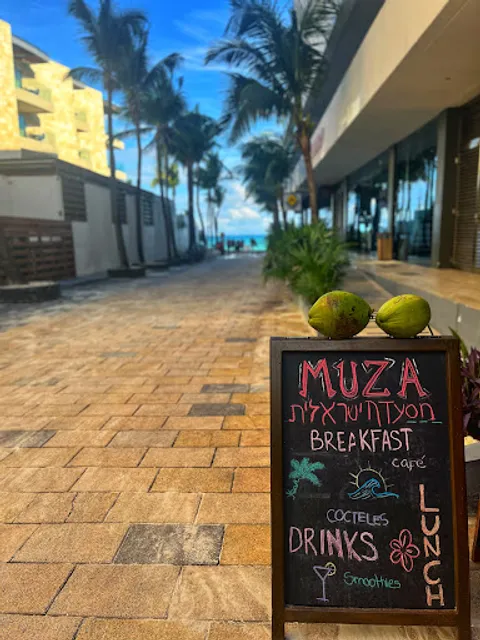 MUZA
מסעדה ישראלית
BREAKFAST
café
COCTELES
DRINKS
Smoothies
LUNCH